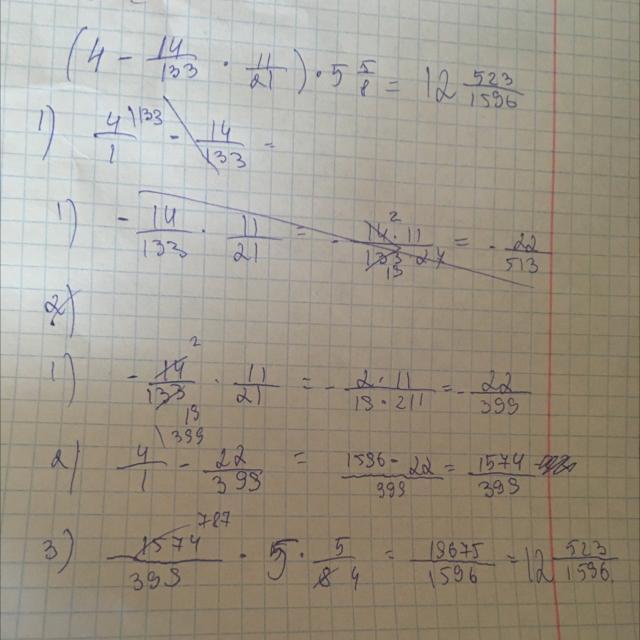 (4 - 14/133 · 11/21) · 5 5/8 = 12 523/1596
1) 4/1 \133 - 14/133 =
1) - 14/133 · 11/21 = - 14 · 11/133 · 21 2 19 = - 22/513
2)
1) - 14/133 2 19 · 11/21 = - 2 · 11/19 · 211 = - 22/399
2) 4/1 \399 - 22/399 = 1596 - 22/399 = 1574/399
3) 1574/399 787 · 5 · 5/8 4 = 19675/1596 = 12 523/1596